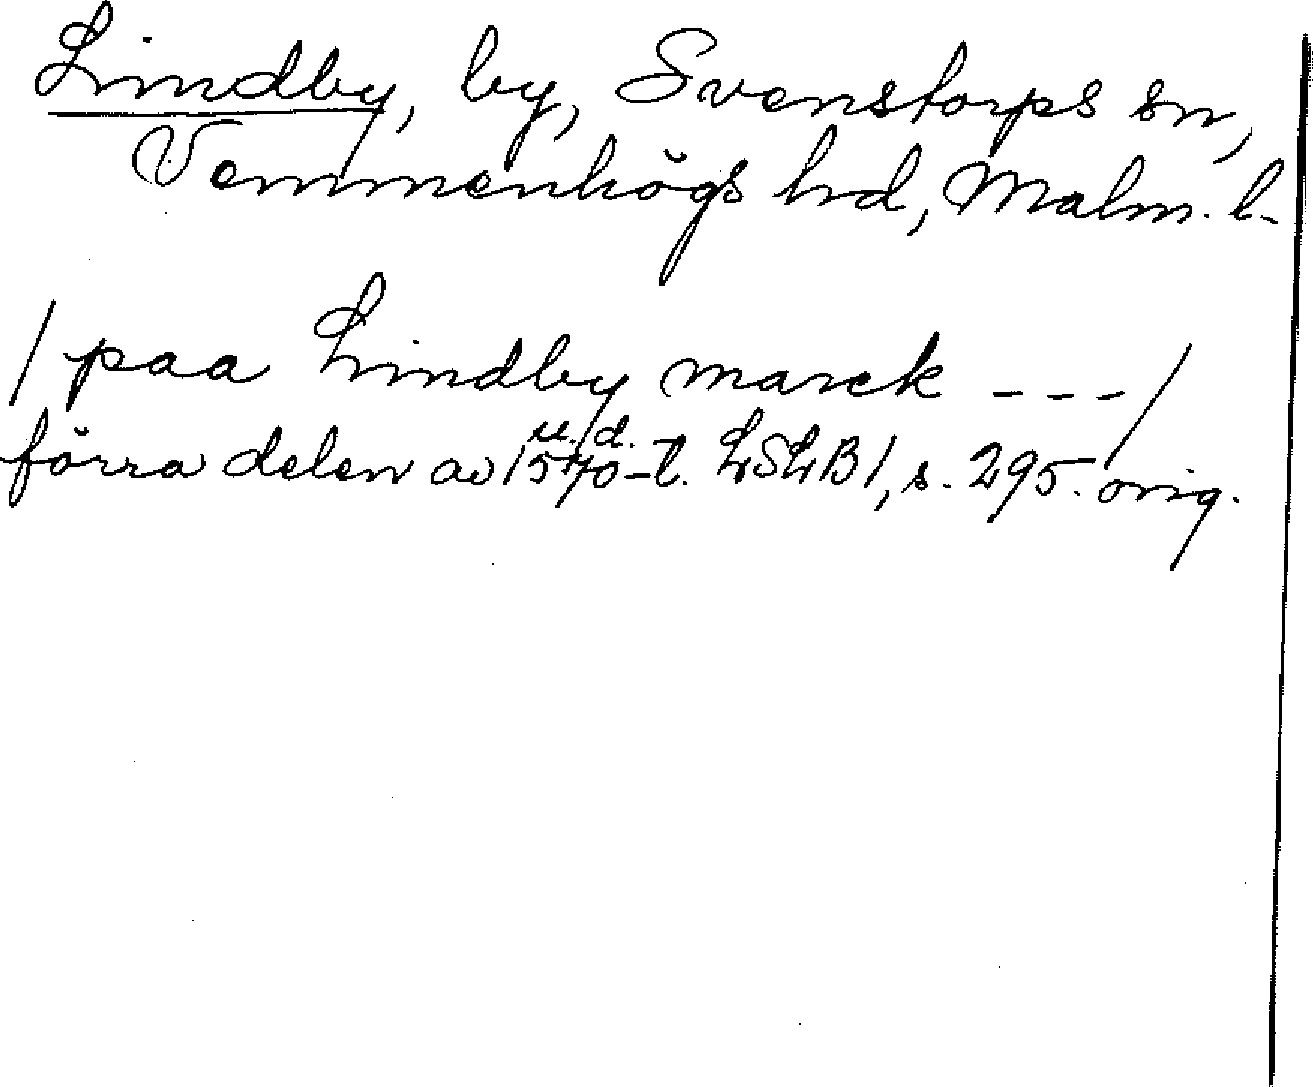 Lindby, by, Svenstorps sn,
Vemmenhögs hd, Malm. l.
/ paa Lindby marck --- /
u. d.
förra delen av 1570-t. LSLB1, s. 295. orig.